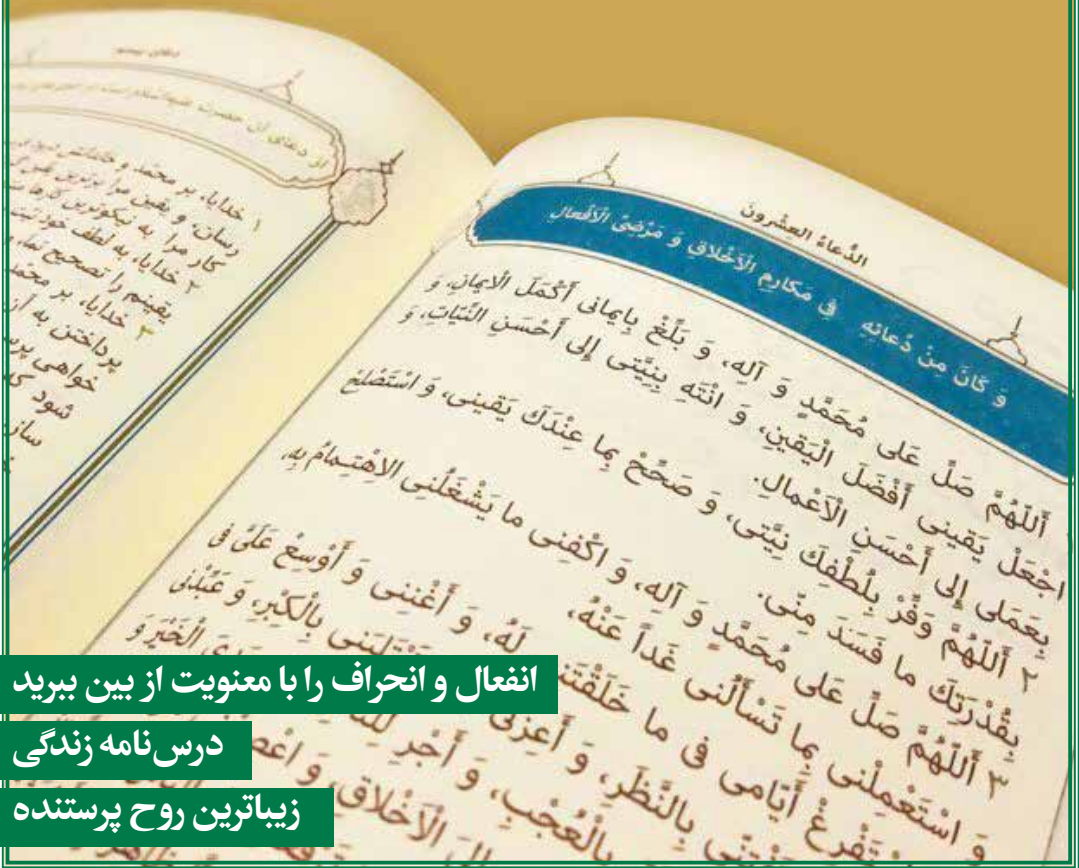 الدُّعاءُ العِشْرونَ
وَ كَانَ مِنْ دُعائِهِ فِي مَكارِمِ الْأَخْلاقِ وَ مَرْضِىِّ الْأَفْعالِ
أَللّهُمَّ صَلِّ عَلى مُحَمَّدٍ وَ آلِهِ، وَ بَلِّغْ بِإيمانى أَكْمَلَ الْإيمانِ، وَ
اجْعَلْ يَقينى أَفْضَلَ الْيَقينِ، وَ انْتَهِ بِنِيَّتى إِلى أَحْسَنِ النِّيّاتِ، وَ
بِعَمَلى إِلى أَحْسَنِ الْأَعْمالِ.
٢ أَللّهُمَّ وَفِّرْ بِلُطْفِكَ نِيَّتى، وَ صَحِّحْ بِما عِنْدَكَ يَقينى، وَ اسْتَصْلِحْ
بِقُدْرَتِكَ ما فَسَدَ مِنّى.
٣ أَللّهُمَّ صَلِّ عَلى مُحَمَّدٍ وَ آلِهِ، وَ اكْفِنى ما يَشْغَلُنِى الاِهْتِمامُ بِهِ،
وَ اسْتَعْمِلْنى بِما تَسْأَلُنى غَداً عَنْهُ،
وَ اسْتَفْرِغْ أَيّامى فى ما خَلَقْتَنى لَهُ، وَ أَغْنِنى وَ أَوْسِعْ عَلَىَّ فى
بِالنَّظَرِ، وَ أَعِزَّنى بِالْكِبْرِ، وَ عَبِّدْنى
بِالْعُجْبِ، وَ أَجْرِ الْخَيْرَ وَ
الْأَخْلاقِ، وَ
دعای بیستم
از دعای آن حضرت علیه‌السلام است
١ خدایا، بر محمد و خاندانش
رسان، و یقین مرا برترین
کار مرا به نیکوترین کارها
٢ خدایا، به لطف خود نیت
یقینم را تصحیح نما، و
٣ خدایا، بر محمد
پرداختن به آن
خواهی
شود که
ساز
انفعال و انحراف را با معنویت از بین ببرید
درس‌نامه زندگی
زیباترین روح پرستنده